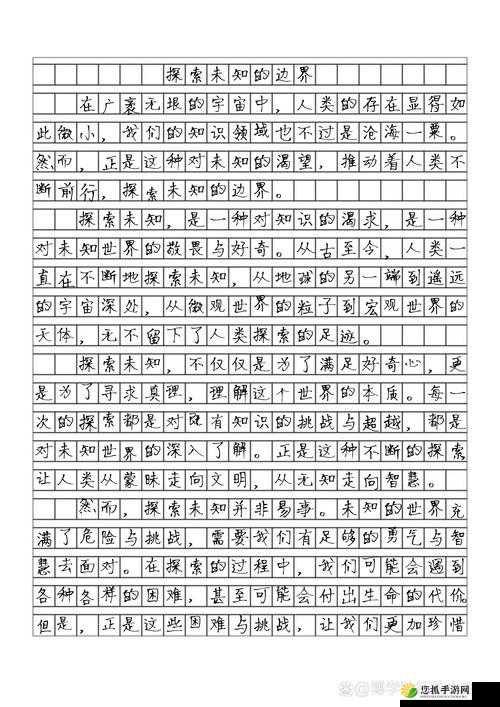 探索未知的边界
在广袤无垠的宇宙中，人类的存在显得如
此微小，我们的知识领域也不过是沧海一粟。
然而，正是这种对未知的渴望，推动着人类不
断前行，探索未知的边界。
探索未知，是一种对知识的渴求，是一种
对未知世界的敬畏与好奇。从古至今，人类一
直在不断地探索未知，从地球的另一端到遥远
的宇宙深处，从微观世界的粒子到宏观世界的
天体，无不留下了人类探索的足迹。
探索未知，不仅仅是为了满足好奇心，更
是为了寻求真理，理解这个世界的本质。每一
次的探索都是对既有知识的挑战与超越，都是
对未知世界的深入了解。正是这种不断的探索
让人类从蒙昧走向文明，从无知走向智慧。
然而，探索未知并非易事。未知的世界充
满了危险与挑战，需要我们有足够的勇气与智
慧去面对。在探索的过程中，我们可能会遇到
各种各样的困难，甚至可能会付出生命的代价。
但是，正是这些困难与挑战，让我们更加珍惜
您抓手游网